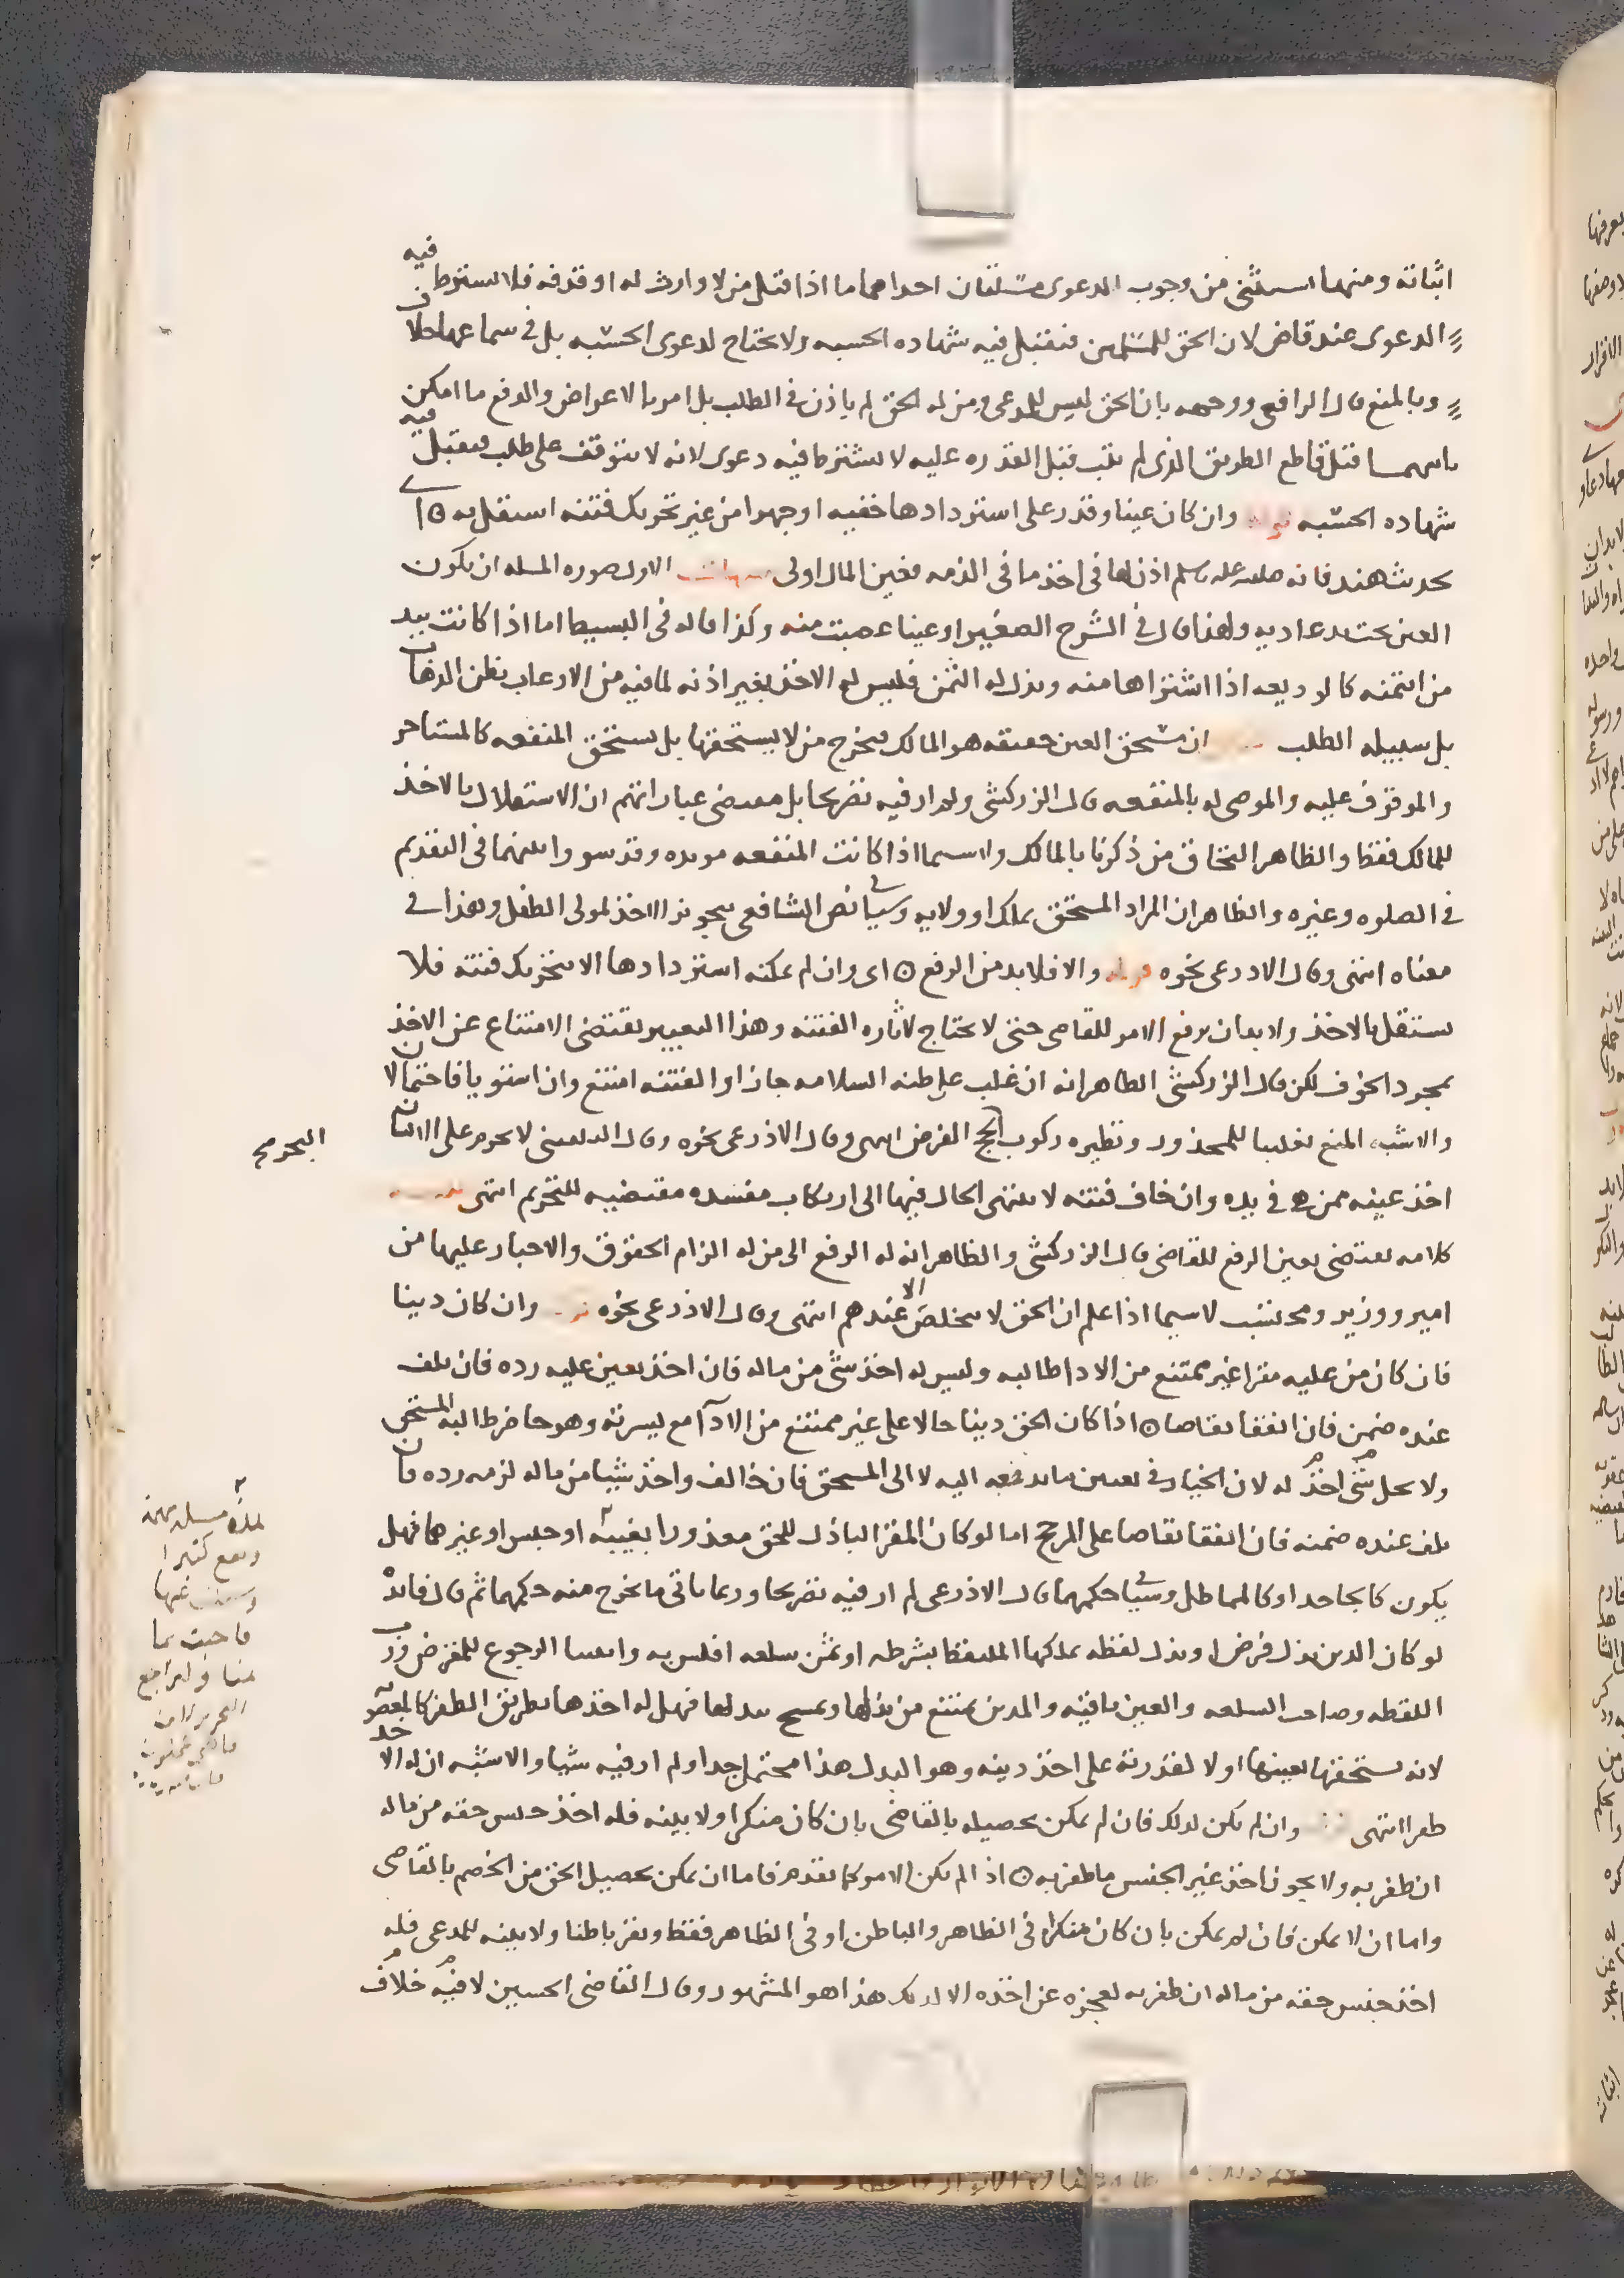 اثباته ومنهما استثنى من وجوب الدعوى مسئلتان احداهما ما اذا قتل من لا وارث له او قذفه فلا يشترط فيه
الدعوى عند قاض لان الحق للمسلمين فتقبل فيه شهاده الحسبه ولا يحتاج لدعوى الحسبه بل في سماعها خلاف
وبالمنع قال الرافعي ووجهه بان الحق ليس للمدعي ومن له الحق لم ياذن في الطلب بل امر بالاعراض والدفع ما امكن
ثانيهما قتل قاطع الطريق الذي لم يتب قبل القدره عليه لا يشترط فيه دعوى لانه لا يتوقف على طلب فيقبل فيه
شهاده الحسبه قوله وان كان عينا وقدر على استردادها خفيه او جهرا من غير تحريك فتنه استقل به اي
لحديث هند فانه صلى الله عليه وسلم اذن لها في اخذ ما في الذمه فعين المال اولى الاول صوره المسله ان يكون
العين تحت يد عاديه ولهذا قال في الشرح الصغير او عينا غصبت منه وكذا قاله في البسيط اما اذا كانت بيد
من ائتمنه كالوديعه اذا اشتراها منه وبذل له الثمن فليس له الاخذ بغير اذنه لما فيه من الارعاب بظن الذهاب
بل سبيله الطلب ان مستحق العين حقيقه هو المالك فيخرج من لا يستحقها بل يستحق المنفعه كالمستاجر
والموقوف عليه والموصى له بالمنفعه قال الزركشي ولم ار فيه تصريحا بل مقتضى عباراتهم ان الاستقلال بالاخذ
للمالك فقط والظاهر التحاق من ذكرنا بالمالك ولا سيما اذا كانت المنفعه موبده وقد سووا بينهما في التقديم
في الصلوه وغيره والظاهر ان المراد المستحق بملك او ولايه وسياتي نص الشافعي بتجويز الاخذ لمولى الطفل وهذا في
معناه انتهى وقال الاذرعي نحوه قوله والا فلا بد من الرفع اي وان لم يمكنه استردادها الا بتحريك فتنه فلا
يستقل بالاخذ ولا بد ان يرفع الامر للقاضي حتى لا يحتاج لاثاره الفتنه وهذا التعبير يقتضي الامتناع عن الاخذ
بمجرد الخوف لكن قال الزركشي الظاهر انه ان غلب على ظنه السلامه جاز او الفتنه امتنع وان استويا فاحتمالان
والاشبه المنع تغليبا للمحذور ونظيره ركوب البحر لحج الفرض انتهى وقال الاذرعي نحوه وقال البلقيني لا يحرم على الانسان
اخذ عينه ممن هي في يده وان خاف فتنه لا ينتهي الحال فيها الى ارتكاب مفسده مقتضيه للتحريم انتهى
كلامه يقتضي تعين الرفع للقاضي قال الزركشي والظاهر انه له الرفع الى من له الزام الحقوق والاجبار عليها من
امير ووزير ومحتسب لا سيما اذا علم ان الحق لا يتخلص الا عندهم انتهى وقال الاذرعي نحوه وان كان دينا
فان كان من عليه مقرا غير ممتنع من الادا طالبه وليس له اخذ شي من ماله فان اخذ تعين عليه رده فان تلف
عنده ضمن فان اتفقا تقاصا اذا كان الحق دينا حالا على غير ممتنع من الادآ مع يسرته وهو حاضر طالبه المستحق
ولا يحل اخذ شي له لان الخيار في تعيين ما يدفعه اليه لا الى المستحق فان خالف واخذ شيئا من ماله لزمه رده فان
تلف عنده ضمنه فان اتفقا تقاصا على المرجح اما لو كان المقر الباذل للحق معذورا بغيبه او حبس او غيرهما فهل
يكون كالجاحد او كالمماطل وسياتي حكمهما قال الاذرعي لم ار فيه تصريحا وربما ياتي ما يخرج منه حكمهما ثم قال فايده
لو كان الدين بدل قرض او بدل لقطه تملكها الملتقط بشرطه او ثمن سلعه افلس به واثبتنا الرجوع للمقرض ورب
اللقطه وصاحب السلعه والعين باقيه والمدين ممتنع من بذلها وسمح ببدلها فهل له اخذها بطريق الظفر كالمغصوب
لانه يستحقها بعينها او لا لقدرته على اخذ دينه وهو البدل هذا محتمل جدا ولم ار فيه شيا والاشبه ان له الاخذ
ظفرا انتهى وان لم يكن كذلك فان لم يمكن تحصيله بالقاضي بان كان منكرا ولا بينه فله اخذ جنس حقه من ماله
ان ظفر به ولا يجوز اخذ غير الجنس ما ظفر به اذا لم يكن الامر كما تقدم فاما ان يمكن تحصيل الحق من الخصم بالقاضي
واما ان لا يمكن فان لم يمكن بان كان منكرا في الظاهر والباطن او في الظاهر فقط ويقر باطنا ولا بينه للمدعي فله
اخذ جنس حقه من ماله ان ظفر به لعجزه عن اخذه الا كذلك هذا هو المشهور وقال القاضي الحسين لا فيه خلاف
البحر صح
هذه مساله مهمه
وتقع كثيرا